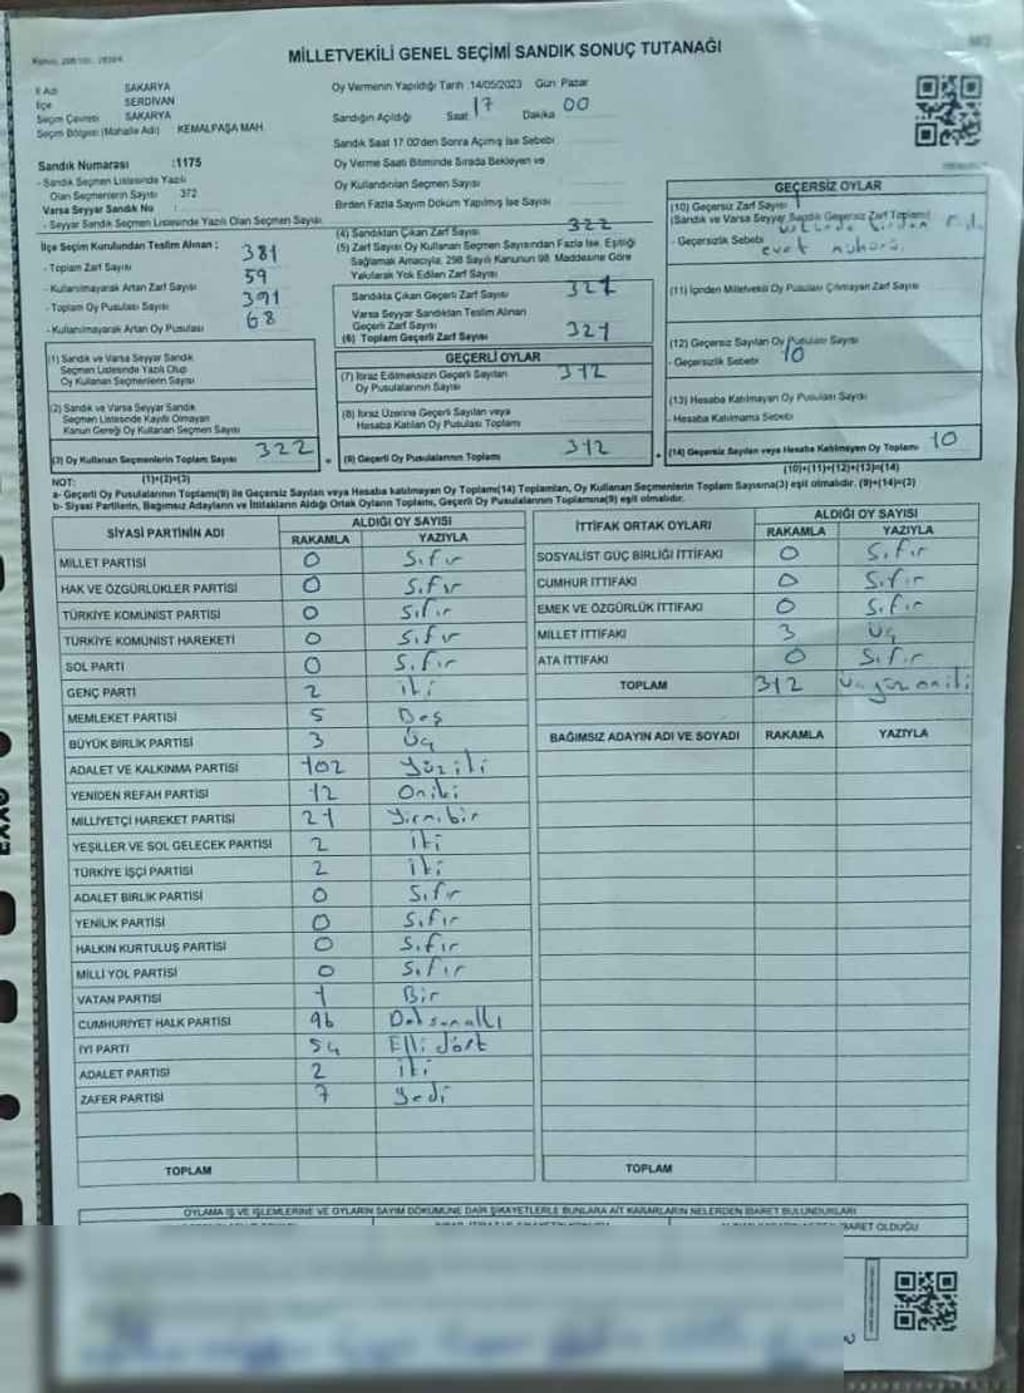 MİLLETVEKİLİ GENEL SEÇİMİ SANDIK SONUÇ TUTANAĞI
İl Adı SAKARYA
İlçe SERDİVAN
Seçim Çevresi SAKARYA
Seçim Bölgesi (Mahalle Adı) KEMALPAŞA MAH.
Sandık Numarası :1175
- Sandık Seçmen Listesinde Yazılı
Olan Seçmenlerin Sayısı 372
Varsa Seyyar Sandık No :
- Seyyar Sandık Seçmen Listesinde Yazılı Olan Seçmen Sayısı
Oy Vermenin Yapıldığı Tarih :14/05/2023 Gün: Pazar
Sandığın Açıldığı Saat 17 Dakika 00
Sandık Saat 17:00'den Sonra Açılmış İse Sebebi
Oy Verme Saati Bitiminde Sırada Bekleyen ve
Oy Kullandırılan Seçmen Sayısı
Birden Fazla Sayım Döküm Yapılmış İse Sayısı
İlçe Seçim Kurulundan Teslim Alınan :
- Toplam Zarf Sayısı 381
- Kullanılmayarak Artan Zarf Sayısı 59
- Toplam Oy Pusulası Sayısı 391
- Kullanılmayarak Artan Oy Pusulası 68
(1) Sandık ve Varsa Seyyar Sandık
Seçmen Listesinde Yazılı Olup
Oy Kullanan Seçmenlerin Sayısı
(2) Sandık ve Varsa Seyyar Sandık
Seçmen Listesinde Kayıtlı Olmayan
Kanun Gereği Oy Kullanan Seçmen Sayısı
(3) Oy Kullanan Seçmenlerin Toplam Sayısı 322
(1)+(2)=(3)
(4) Sandıktan Çıkan Zarf Sayısı 322
(5) Zarf Sayısı Oy Kullanan Seçmen Sayısından Fazla İse, Eşitliği
Sağlamak Amacıyla, 298 Sayılı Kanunun 98. Maddesine Göre
Yakılarak Yok Edilen Zarf Sayısı
Sandıkta Çıkan Geçerli Zarf Sayısı 321
Varsa Seyyar Sandıktan Teslim Alınan
Geçerli Zarf Sayısı
(6) Toplam Geçerli Zarf Sayısı 321
GEÇERLİ OYLAR
(7) İtiraz Edilmeksizin Geçerli Sayılan
Oy Pusulalarının Sayısı 312
(8) İtiraz Üzerine Geçerli Sayılan veya
Hesaba Katılan Oy Pusulası Toplamı
(9) Geçerli Oy Pusulalarının Toplamı 312
GEÇERSİZ OYLAR
(10) Geçersiz Zarf Sayısı 1
(Sandık ve Varsa Seyyar Sandık Geçersiz Zarf Toplamı)
- Geçersizlik Sebebi
evet mührü.
(11) İçinden Milletvekili Oy Pusulası Çıkmayan Zarf Sayısı
(12) Geçersiz Sayılan Oy Pusulası Sayısı 10
- Geçersizlik Sebebi
(13) Hesaba Katılmayan Oy Pusulası Sayısı
- Hesaba Katılmama Sebebi
(14) Geçersiz Sayılan veya Hesaba Katılmayan Oy Toplamı 10
(10)+(11)+(12)+(13)=(14)
NOT:
a- Geçerli Oy Pusulalarının Toplamı(9) ile Geçersiz Sayılan veya Hesaba katılmayan Oy Toplamı(14) Toplamları, Oy Kullanan Seçmenlerin Toplam Sayısına(3) eşit olmalıdır. (9)+(14)=(3)
b- Siyasi Partilerin, Bağımsız Adayların ve İttifakların Aldığı Ortak Oyların Toplamı, Geçerli Oy Pusulalarının Toplamına(9) eşit olmalıdır.
SİYASİ PARTİNİN ADI ALDIĞI OY SAYISI
RAKAMLA YAZIYLA
MİLLET PARTİSİ 0 Sıfır
HAK VE ÖZGÜRLÜKLER PARTİSİ 0 Sıfır
TÜRKİYE KOMÜNİST PARTİSİ 0 Sıfır
TÜRKİYE KOMÜNİST HAREKETİ 0 Sıfır
SOL PARTİ 0 Sıfır
GENÇ PARTİ 2 iki
MEMLEKET PARTİSİ 5 Beş
BÜYÜK BİRLİK PARTİSİ 3 Üç
ADALET VE KALKINMA PARTİSİ 102 Yüziki
YENİDEN REFAH PARTİSİ 12 Oniki
MİLLİYETÇİ HAREKET PARTİSİ 21 Yirmibir
YEŞİLLER VE SOL GELECEK PARTİSİ 2 iki
TÜRKİYE İŞÇİ PARTİSİ 2 iki
ADALET BİRLİK PARTİSİ 0 Sıfır
YENİLİK PARTİSİ 0 Sıfır
HALKIN KURTULUŞ PARTİSİ 0 Sıfır
MİLLİ YOL PARTİSİ 0 Sıfır
VATAN PARTİSİ 1 Bir
CUMHURİYET HALK PARTİSİ 96 Doksanaltı
İYİ PARTİ 54 Elli dört
ADALET PARTİSİ 2 iki
ZAFER PARTİSİ 7 Yedi
TOPLAM
İTTİFAK ORTAK OYLARI ALDIĞI OY SAYISI
RAKAMLA YAZIYLA
SOSYALİST GÜÇ BİRLİĞİ İTTİFAKI 0 Sıfır
CUMHUR İTTİFAKI 0 Sıfır
EMEK VE ÖZGÜRLÜK İTTİFAKI 0 Sıfır
MİLLET İTTİFAKI 3 Üç
ATA İTTİFAKI 0 Sıfır
TOPLAM 312 Üçyüz oniki
BAĞIMSIZ ADAYIN ADI VE SOYADI RAKAMLA YAZIYLA
TOPLAM
OYLAMA İŞ VE İŞLEMLERİNE VE OYLARIN SAYIM DÖKÜMÜNE DAİR ŞİKAYETLERLE BUNLARA AİT KARARLARIN NELERDEN İBARET BULUNDUKLARI
İBARET OLDUĞU